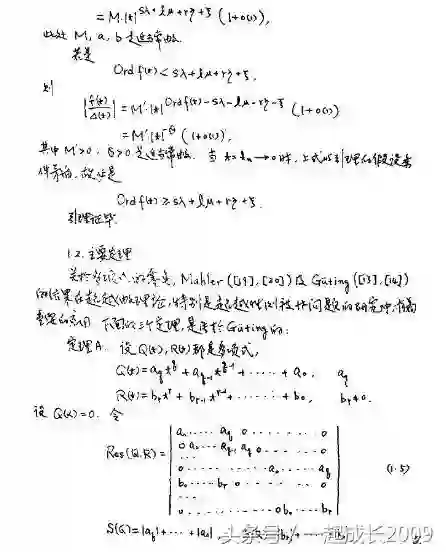 = M·|t|^{sλ+lμ+rη+ξ} (1+o(1))
此处 M, a, b 是适当常数.
若是
Ord f(t) < sλ + lμ + rη + ξ,
则
|f(t)/Δ(t)| = M'|t|^{Ord f(t)-sλ-lμ-rη-ξ} (1+o(1))
= M'|t|^{-θ} (1+o(1)),
其中 M'>0, θ>0 是适当常数. 当 t = tₙ → 0 时, 上式与引理的假设条
件矛盾, 故必是
Ord f(t) ≥ sλ + lμ + rη + ξ.
引理证毕.
1.2. 主要定理
关于多项式的零点, Mahler ([19], [20]) 及 Güting ([13], [14])
的结果在超越数理论, 特别是超越性的研究中, 有着
重要的应用. 下面的三个定理, 是属于 Güting 的:
定理A. 设 Q(x), R(x) 都是多项式,
Q(x) = a_q x^q + a_{q-1} x^{q-1} + ······ + a₀, a_q
R(x) = b_r x^r + b_{r-1} x^{r-1} + ······ + b₀, b_r ≠ 0.
设 Q(α)=0. 令
Res(Q,R) =
a₀ ······ a_q 0 ········ 0
0 a₀ ··· a_{q-1} a_q 0 ······ 0
···
0 ············ a₀ ······ a_q
b₀ ······ b_r 0 ········ 0
···
0 ············ 0 b₀ ··· b_r
(1.5)
S(Q) = |a_q| + ··· + |a₀|,
头条号 / 一起成长2009